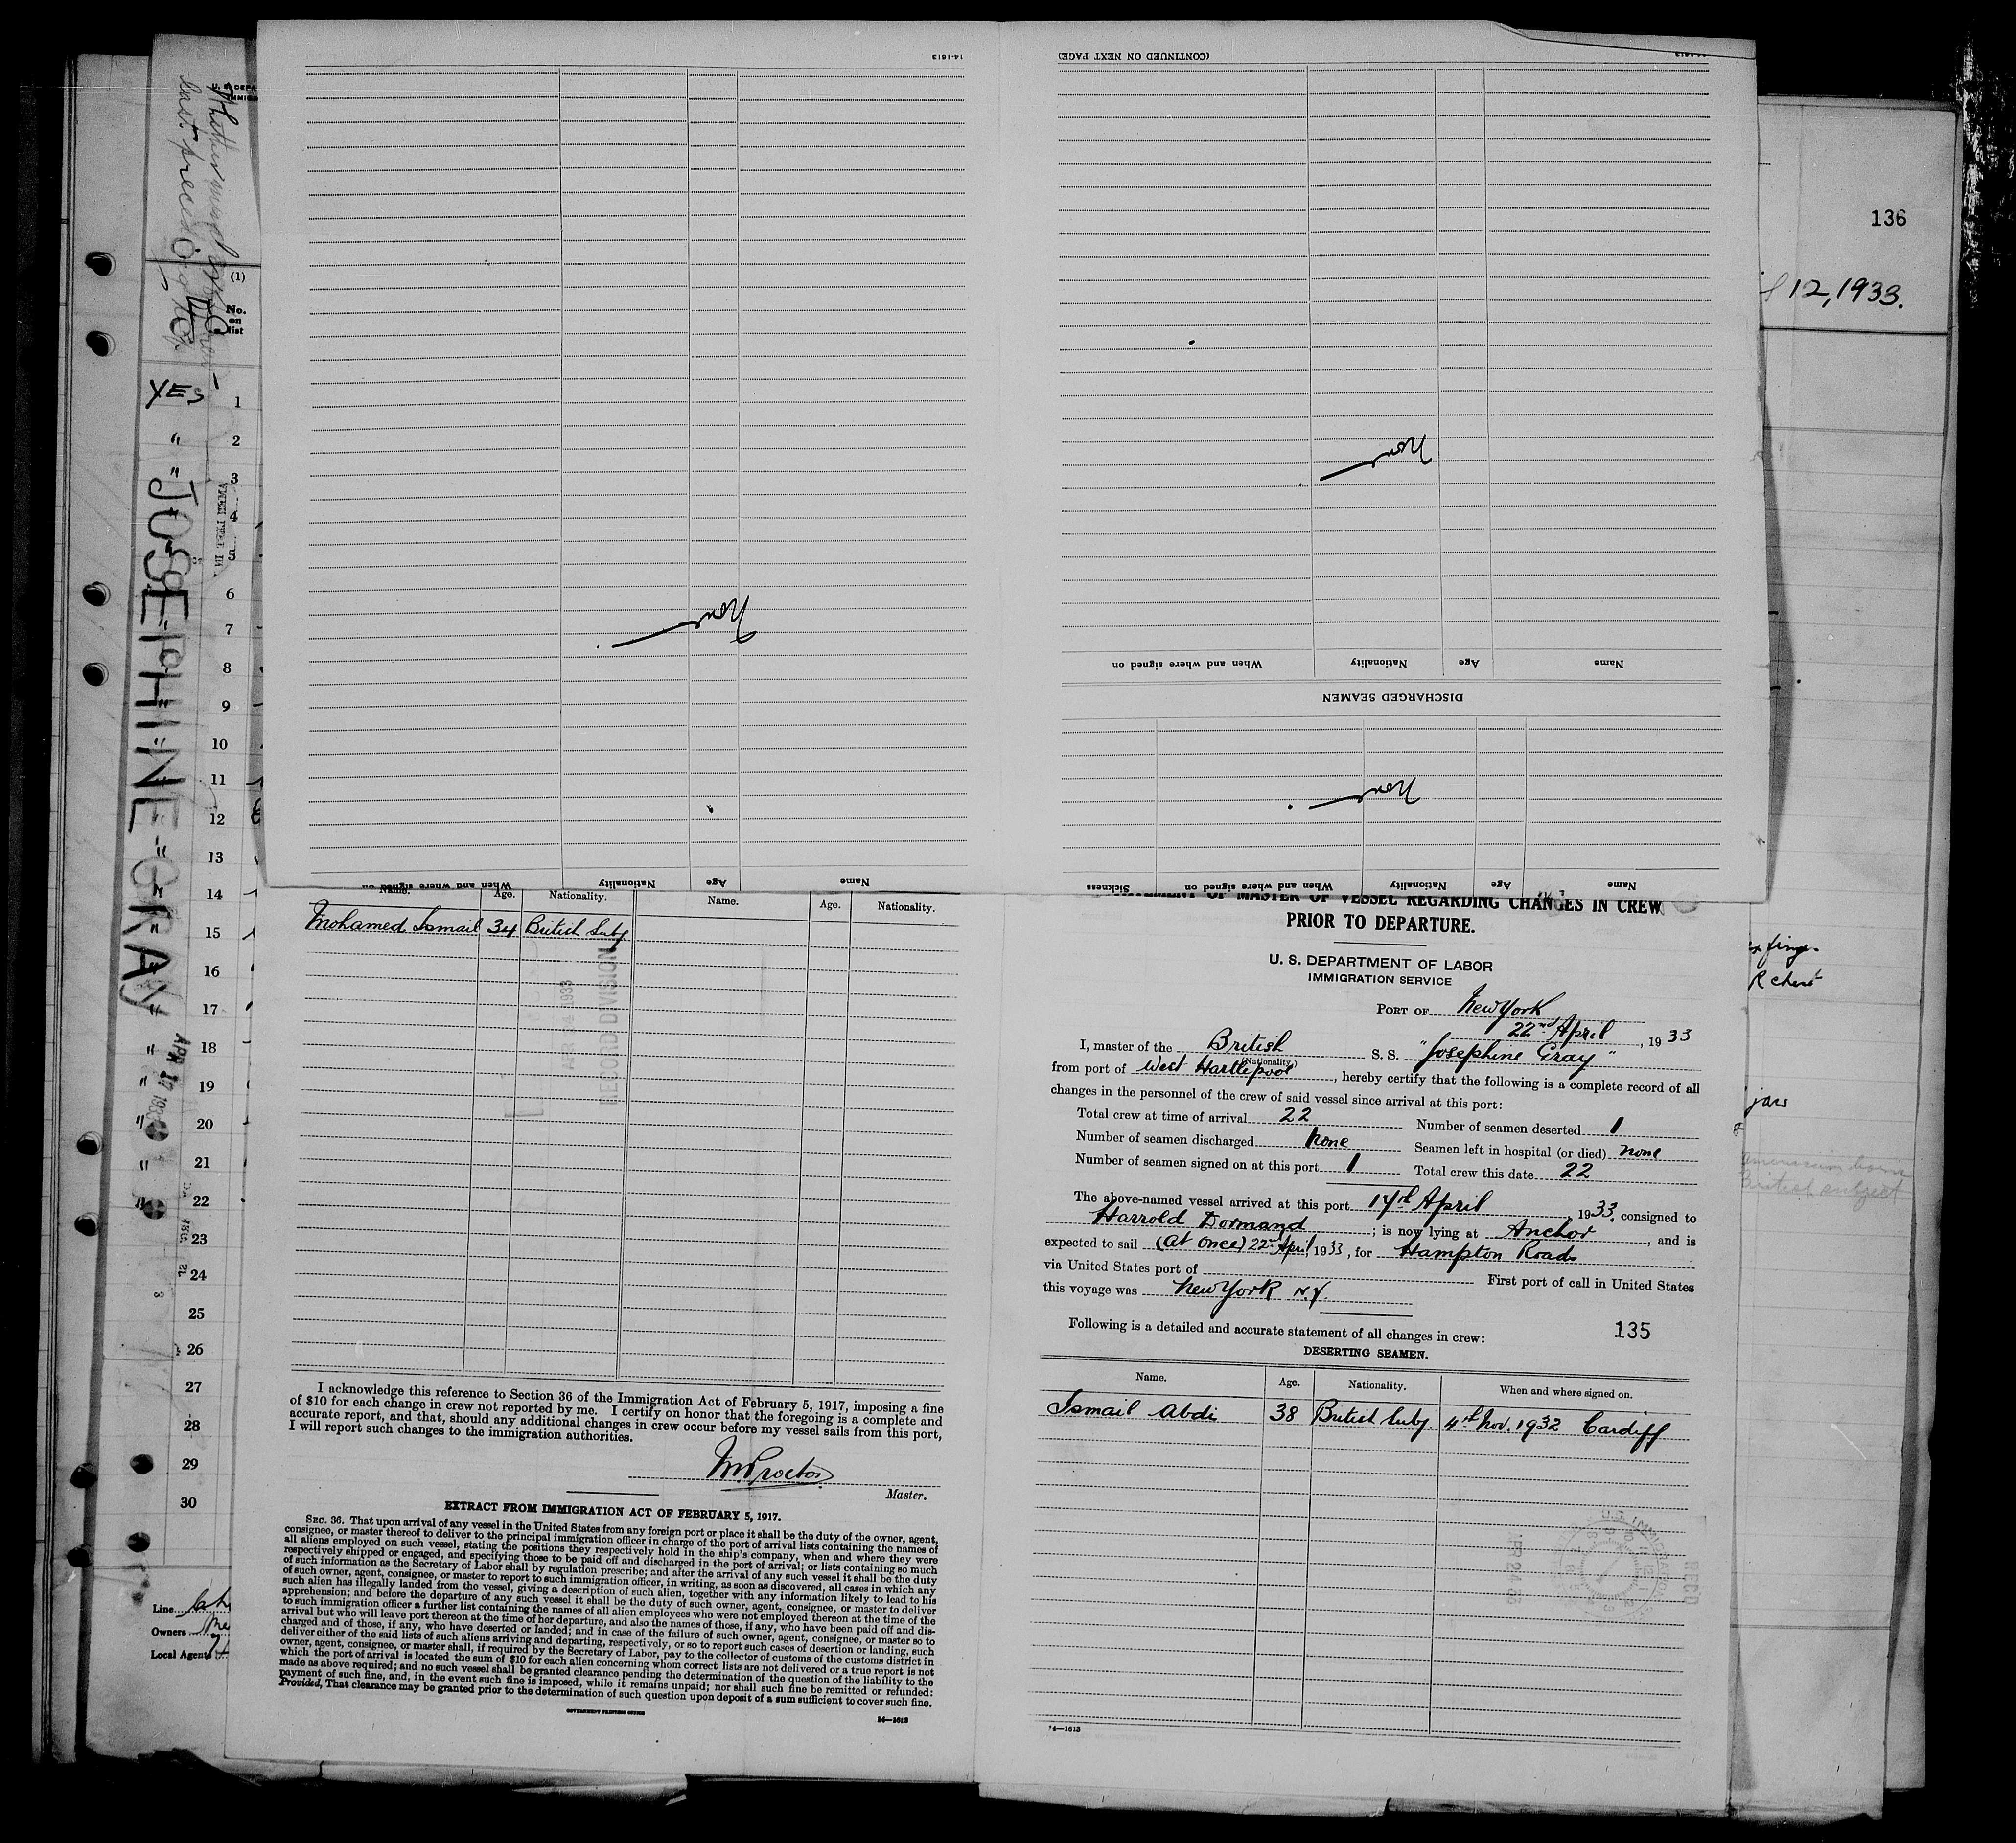 14-1613
(CONTINUED ON NEXT PAGE)
136
12, 1933.
(1)
No.
on
list
YES
"
"
JOSEPHINE GRAY
1
2
3
4
5
6
7
8
9
10
11
12
13
14
15
16
17
18
19
20
21
22
23
24
25
26
27
28
29
30
Line
Owners
Local Agents
None
None
None
When and where signed on
Nationality
Age
Name
DISCHARGED SEAMEN
When and where signed on
Nationality
Age
Name
Sickness
When and where signed on
Nationality
Age
Name
Name. Age. Nationality. Name. Age. Nationality.
Mohamed Ismail 34 British Subj.
RECORD DIVISION
I acknowledge this reference to Section 36 of the Immigration Act of February 5, 1917, imposing a fine
of $10 for each change in crew not reported by me. I certify on honor that the foregoing is a complete and
accurate report, and that, should any additional changes in crew occur before my vessel sails from this port,
I will report such changes to the immigration authorities.
Master.
EXTRACT FROM IMMIGRATION ACT OF FEBRUARY 5, 1917.
SEC. 36. That upon arrival of any vessel in the United States from any foreign port or place it shall be the duty of the owner, agent,
consignee, or master thereof to deliver to the principal immigration officer in charge of the port of arrival lists containing the names of
all aliens employed on such vessel, stating the positions they respectively hold in the ship's company, when and where they were
respectively shipped or engaged, and specifying those to be paid off and discharged in the port of arrival; or lists containing so much
of such information as the Secretary of Labor shall by regulation prescribe; and after the arrival of any such vessel it shall be the duty
of such owner, agent, consignee, or master to report to such immigration officer, in writing, as soon as discovered, all cases in which any
such alien has illegally landed from the vessel, giving a description of such alien, together with any information likely to lead to his
apprehension; and before the departure of any such vessel it shall be the duty of such owner, agent, consignee, or master to deliver
to such immigration officer a further list containing the names of all alien employees who were not employed thereon at the time of the
arrival but who will leave port thereon at the time of her departure, and also the names of those, if any, who have been paid off and dis-
charged and of those, if any, who have deserted or landed; and in case of the failure of such owner, agent, consignee, or master so to
deliver either of the said lists of such aliens arriving and departing, respectively, or so to report such cases of desertion or landing, such
owner, agent, consignee, or master shall, if required by the Secretary of Labor, pay to the collector of customs of the customs district in
which the port of arrival is located the sum of $10 for each alien concerning whom correct lists are not delivered or a true report is not
made as above required; and no such vessel shall be granted clearance pending the determination of the question of the liability to the
payment of such fine, and, in the event such fine is imposed, while it remains unpaid; nor shall such fine be remitted or refunded:
Provided, That clearance may be granted prior to the determination of such question upon deposit of a sum sufficient to cover such fine.
GOVERNMENT PRINTING OFFICE
14—1613
OF MASTER OF VESSEL REGARDING CHANGES IN CREW
PRIOR TO DEPARTURE.
U. S. DEPARTMENT OF LABOR
IMMIGRATION SERVICE
PORT OF New York
22nd April, 1933
I, master of the British S. S. "Josephine Gray"
(Nationality)
from port of West Hartlepool, hereby certify that the following is a complete record of all
changes in the personnel of the crew of said vessel since arrival at this port:
Total crew at time of arrival 22 Number of seamen deserted 1
Number of seamen discharged none Seamen left in hospital (or died) none
Number of seamen signed on at this port 1 Total crew this date 22
The above-named vessel arrived at this port 14th April, 1933, consigned to
Harrold Dormand; is now lying at Anchor, and is
expected to sail (at once) 22nd April, 1933, for Hampton Roads
via United States port of First port of call in United States
this voyage was New York N.Y.
Following is a detailed and accurate statement of all changes in crew:
135
DESERTING SEAMEN.
Name. Age. Nationality. When and where signed on.
Ismail Abdi 38 British Subj. 4th Nov. 1932 Cardiff
14—1613